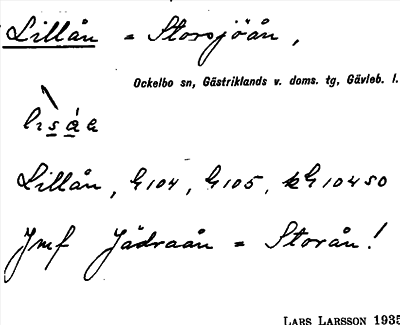 Lillån = Storsjöån,
Ockelbo sn, Gästriklands v. doms. tg, Gävleb. l.
Lillån, G104, G105, G104 SO
Jmf Jädraån = Storån!
LARS LARSSON 1935